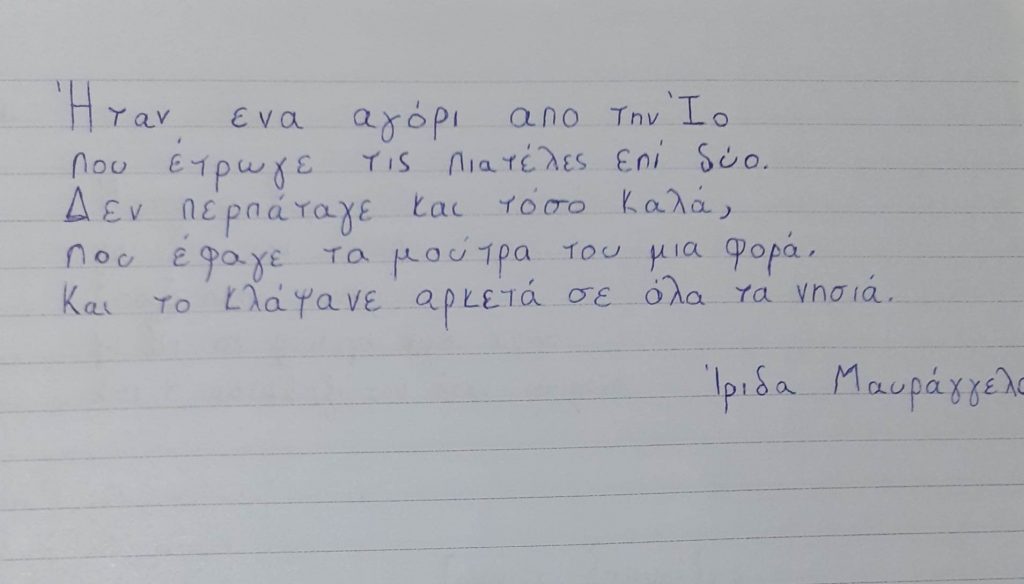 Ήταν ενα αγόρι απο την Ίο
που έτρωγε τις πιατέλες επί δύο.
Δεν περπάταγε και τόσο καλά,
που έφαγε τα μούτρα του μια φορά.
Και το κλάψανε αρκετά σε όλα τα νησιά.
Ίριδα Μαυράγγελο